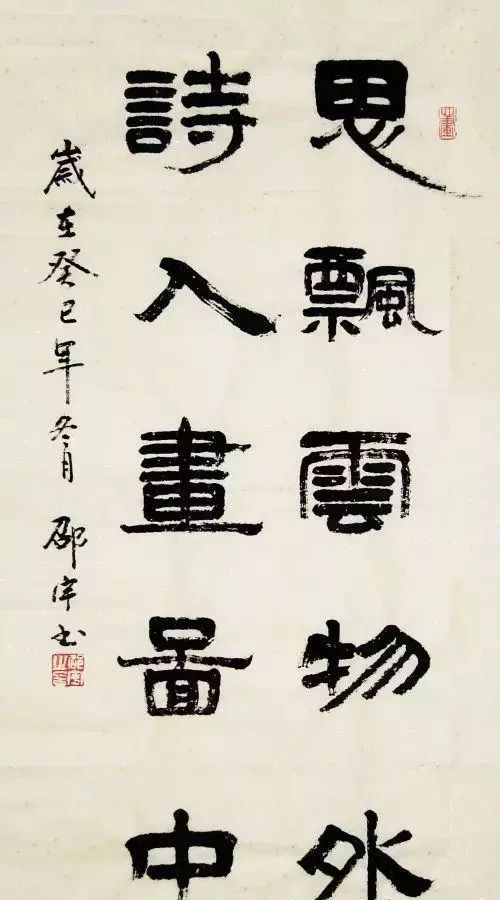 思飄雲物外
詩入畫圖中
歲在癸巳年冬月 邵 书